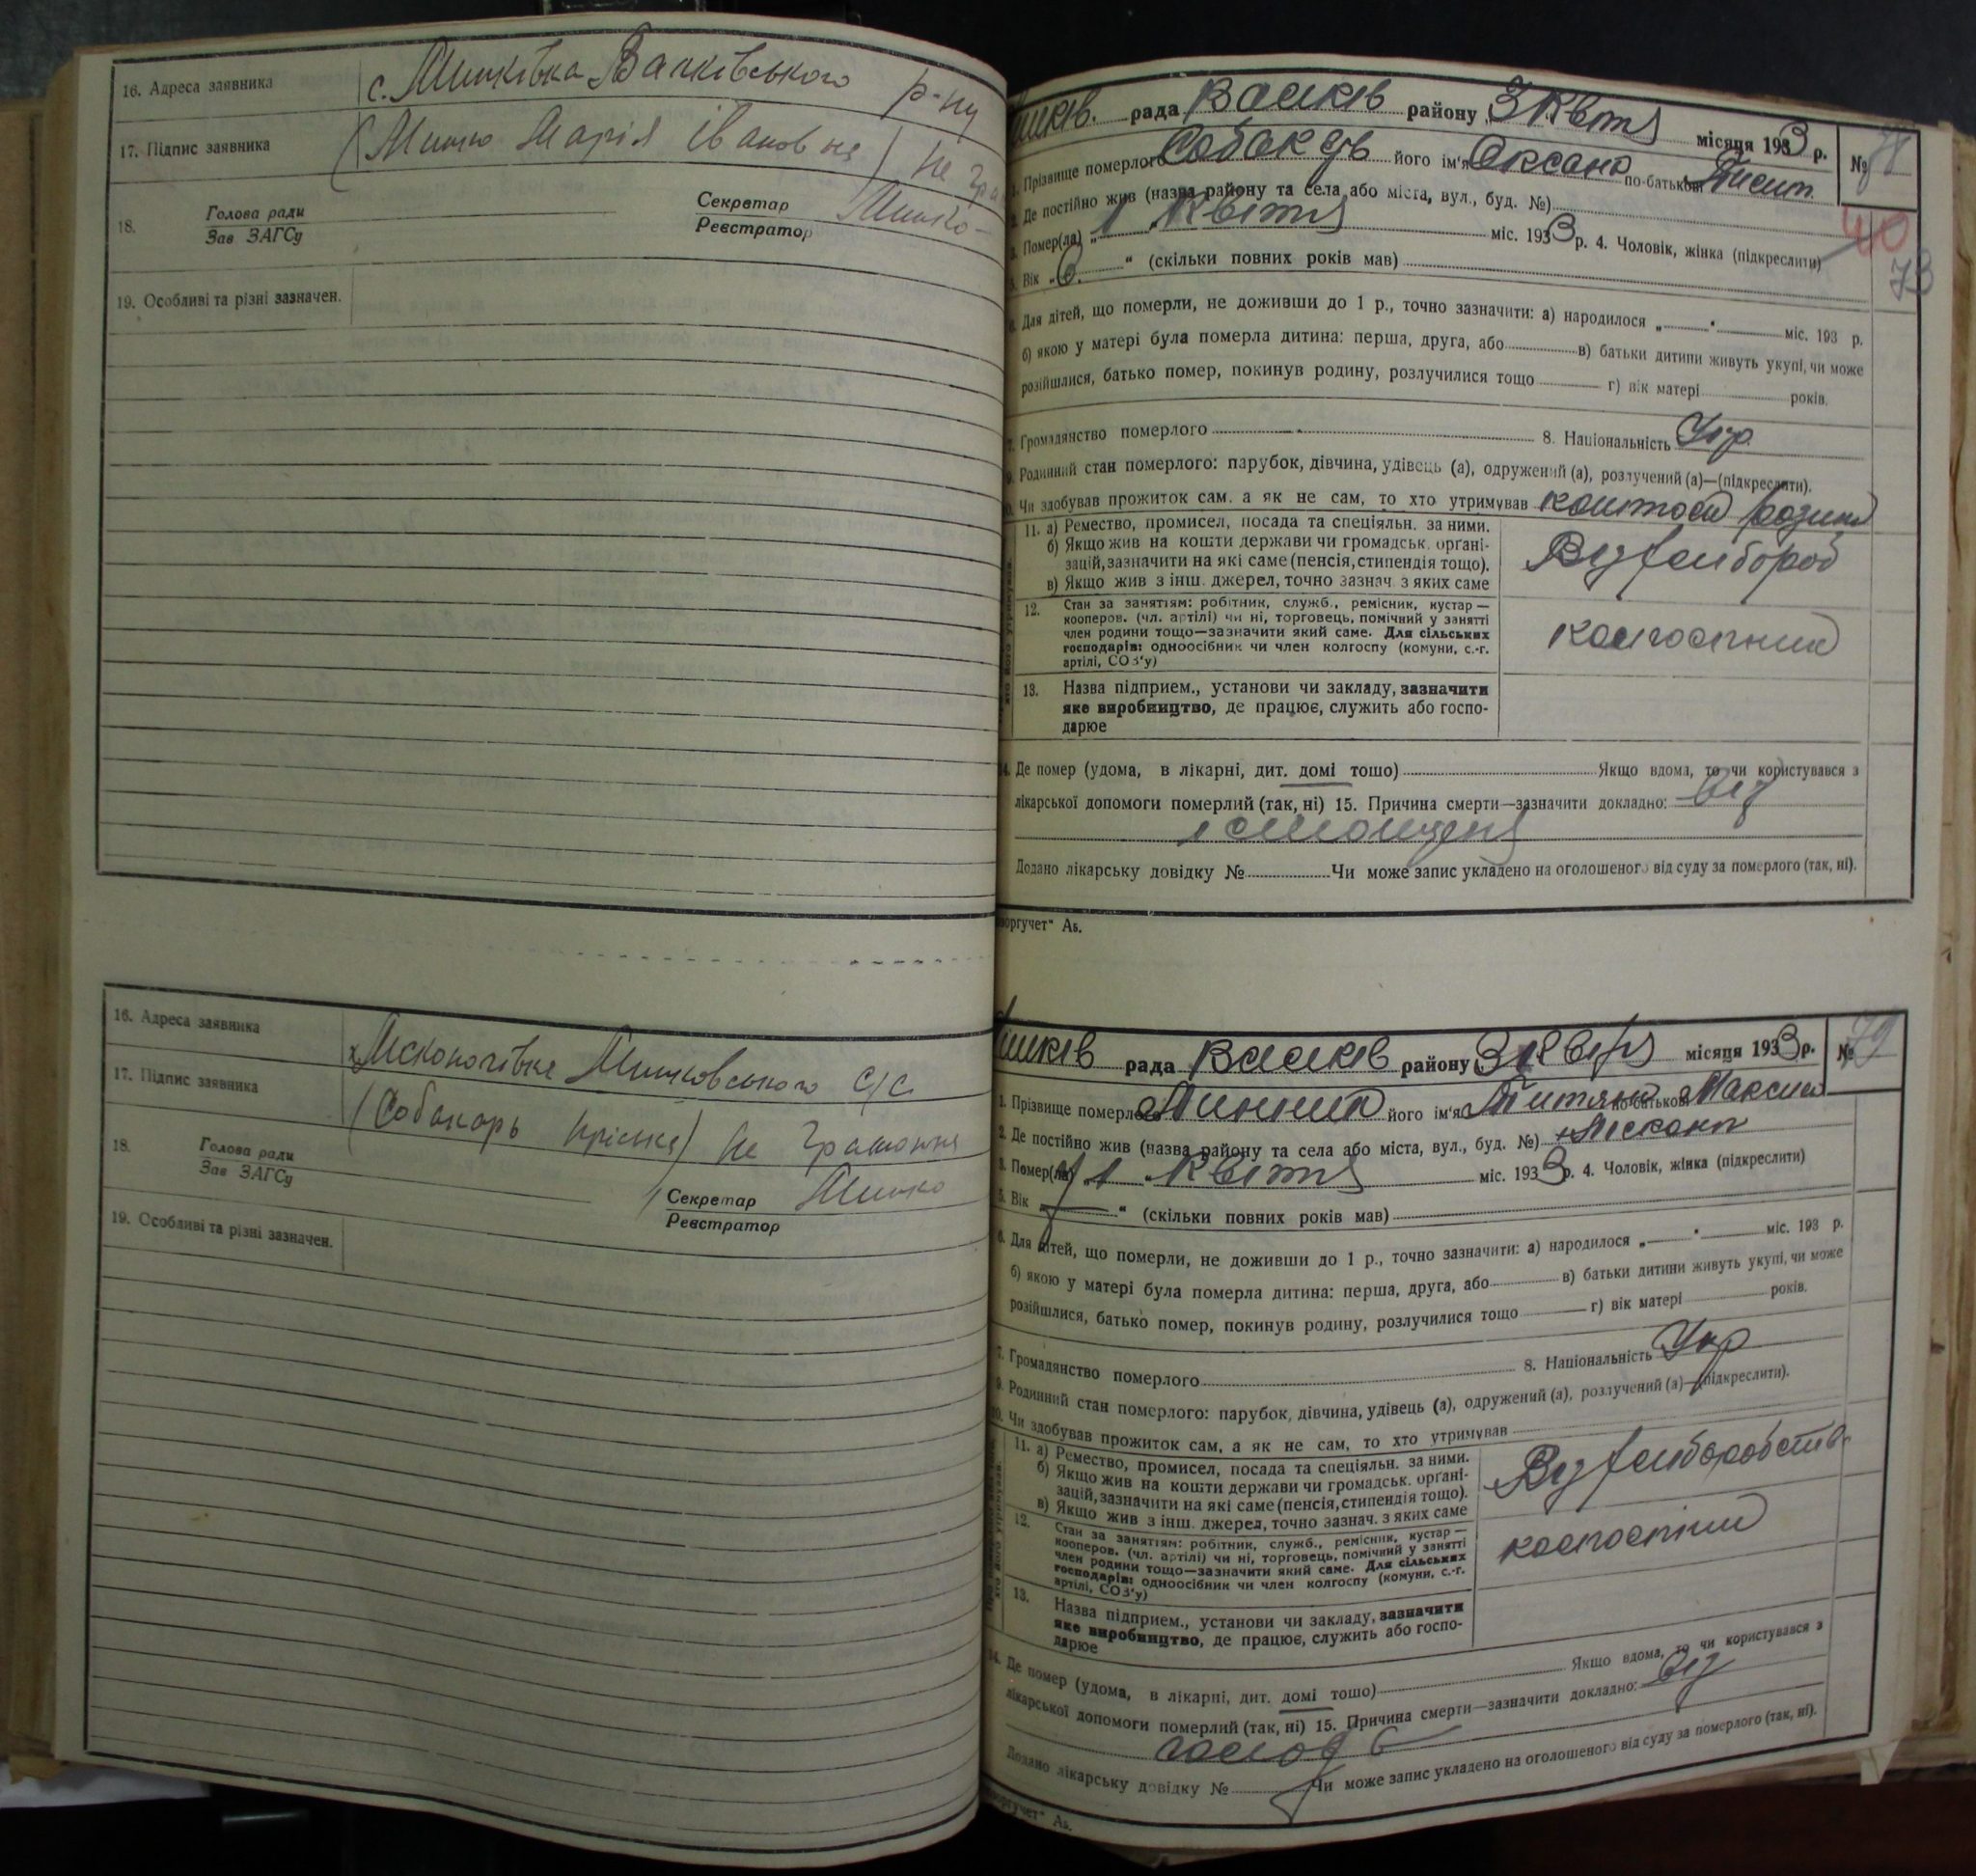 16. Адреса заявника с. Минківка Валківського р-ну
17. Підпис заявника (Минко Марія Івановна) не гра
18. Голова ради
Зав ЗАГСу
Секретар Минко
Реєстратор
19. Особливі та різні зазначен.
16. Адреса заявника Минковського С/С
17. Підпис заявника (Собакарь Пріська) не грамотня
18. Голова ради
Зав ЗАГСу
Секретар Минко
Реєстратор
19. Особливі та різні зазначен.
рада Валків району 3 Квітня місяця 1933 р. № 78
1. Прізвище померлого Собакарь його ім'я Оксана по-батькові
2. Де постійно жив (назва району та села або міста, вул., буд. №)
40
73
3. Помер(ла) „1 Квітня міс. 1933 р. 4. Чоловік, жінка (підкреслити)
5. Вік „6 “ (скільки повних років мав)
6. Для дітей, що померли, не доживши до 1 р., точно зазначити: а) народилося „ “ міс. 193 р.
б) якою у матері була померла дитина: перша, друга, або в) батьки дитини живуть укупі, чи може
розійшлися, батько помер, покинув родину, розлучилися тощо г) вік матері років.
7. Громадянство померлого 8. Національність Укр
9. Родинний стан померлого: парубок, дівчина, удівець (а), одружений (а), розлучений (а)—(підкреслити).
10. Чи здобував прожиток сам, а як не сам, то хто утримував коштом родини
11. а) Ремество, промисел, посада та спеціяльн. за ними.
б) Якщо жив на кошти держави чи громадськ. органі-
зацій, зазначити на які саме (пенсія, стипендія тощо).
в) Якщо жив з інш. джерел, точно зазнач. з яких саме
Від хлібороб
12. Стан за заняттям: робітник, служб., ремісник, кустар—
кооперов. (чл. артілі) чи ні, торговець, помічний у занятті
член родини тощо—зазначити який саме. Для сільських
господарів: одноосібник чи член колгоспу (комуни, с.-г.
артілі, СОЗ'у)
колгоспник
13. Назва підприєм., установи чи закладу, зазначити
яке виробництво, де працює, служить або госпо-
дарює
14. Де помер (удома, в лікарні, дит. домі тощо) Якщо вдома, то чи користувався з
лікарської допомоги померлий (так, ні) 15. Причина смерти—зазначити докладно: від
істощеня
Додано лікарську довідку № Чи може запис укладено на оголошеного від суду за померлого (так, ні).
воргучет“ Аб.
рада Валків району 3 Квітня місяця 1933 р. № 79
1. Прізвище померлого його ім'я Титяна по-батькові Максим
2. Де постійно жив (назва району та села або міста, вул., буд. №)
3. Помер(ла) 1 Квітня міс. 1933 р. 4. Чоловік, жінка (підкреслити)
5. Вік “ (скільки повних років мав)
6. Для дітей, що померли, не доживши до 1 р., точно зазначити: а) народилося „ “ міс. 193 р.
б) якою у матері була померла дитина: перша, друга, або в) батьки дитини живуть укупі, чи може
розійшлися, батько помер, покинув родину, розлучилися тощо г) вік матері років.
7. Громадянство померлого 8. Національність Укр
9. Родинний стан померлого: парубок, дівчина, удівець (а), одружений (а), розлучений (а)—(підкреслити).
10. Чи здобував прожиток сам, а як не сам, то хто утримував
11. а) Ремество, промисел, посада та спеціяльн. за ними.
б) Якщо жив на кошти держави чи громадськ. органі-
зацій, зазначити на які саме (пенсія, стипендія тощо).
в) Якщо жив з інш. джерел, точно зазнач. з яких саме
Від хліборобств
12. Стан за заняттям: робітник, служб., ремісник, кустар—
кооперов. (чл. артілі) чи ні, торговець, помічний у занятті
член родини тощо—зазначити який саме. Для сільських
господарів: одноосібник чи член колгоспу (комуни, с.-г.
артілі, СОЗ'у)
колгоспник
13. Назва підприєм., установи чи закладу, зазначити
яке виробництво, де працює, служить або госпо-
дарює
14. Де помер (удома, в лікарні, дит. домі тощо) Якщо вдома, то чи користувався з
лікарської допомоги померлий (так, ні) 15. Причина смерти—зазначити докладно: від
голоду
Додано лікарську довідку № Чи може запис укладено на оголошеного від суду за померлого (так, ні).
воргучет“ Аб.